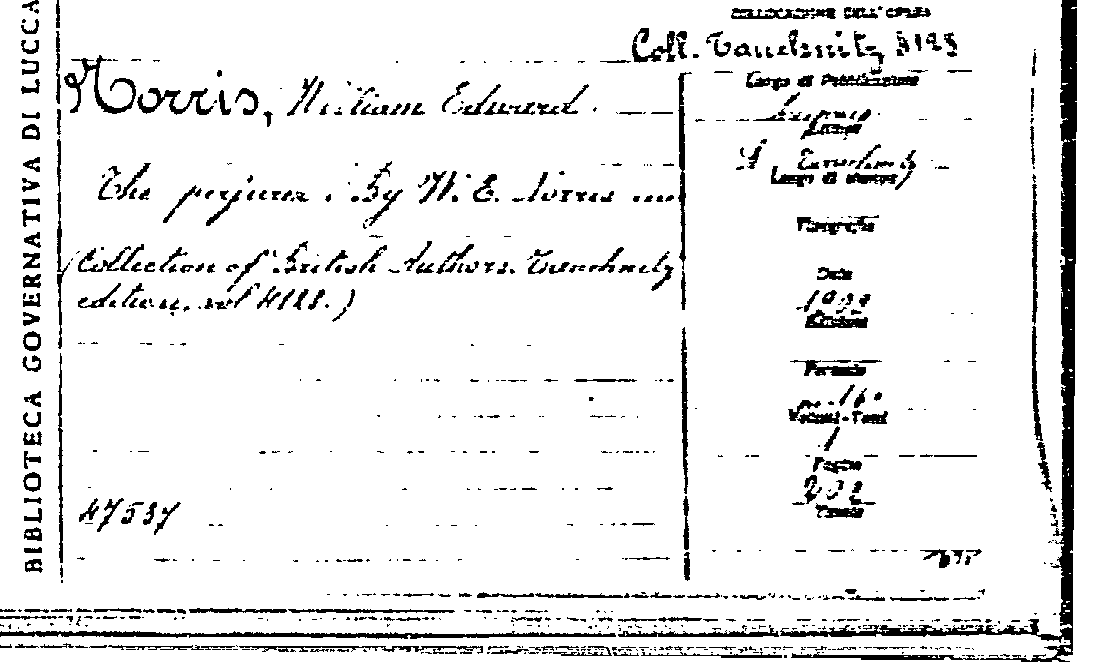 BIBLIOTECA GOVERNATIVA DI LUCCA
COLLOCAZIONE DELL'OPERA
Coll. Tauchnitz
Norris, William Edward.
The perjurer. By W. E. Norris
(Collection of British Authors. Tauchnitz
edition, vol
47537
Luogo di Pubblicazione
Editore
Tauchnitz
Luogo di stampa
Tipografia
Data
1909
Edizione
Formato
Volumi-Tomi
1
Pagine
Tavole